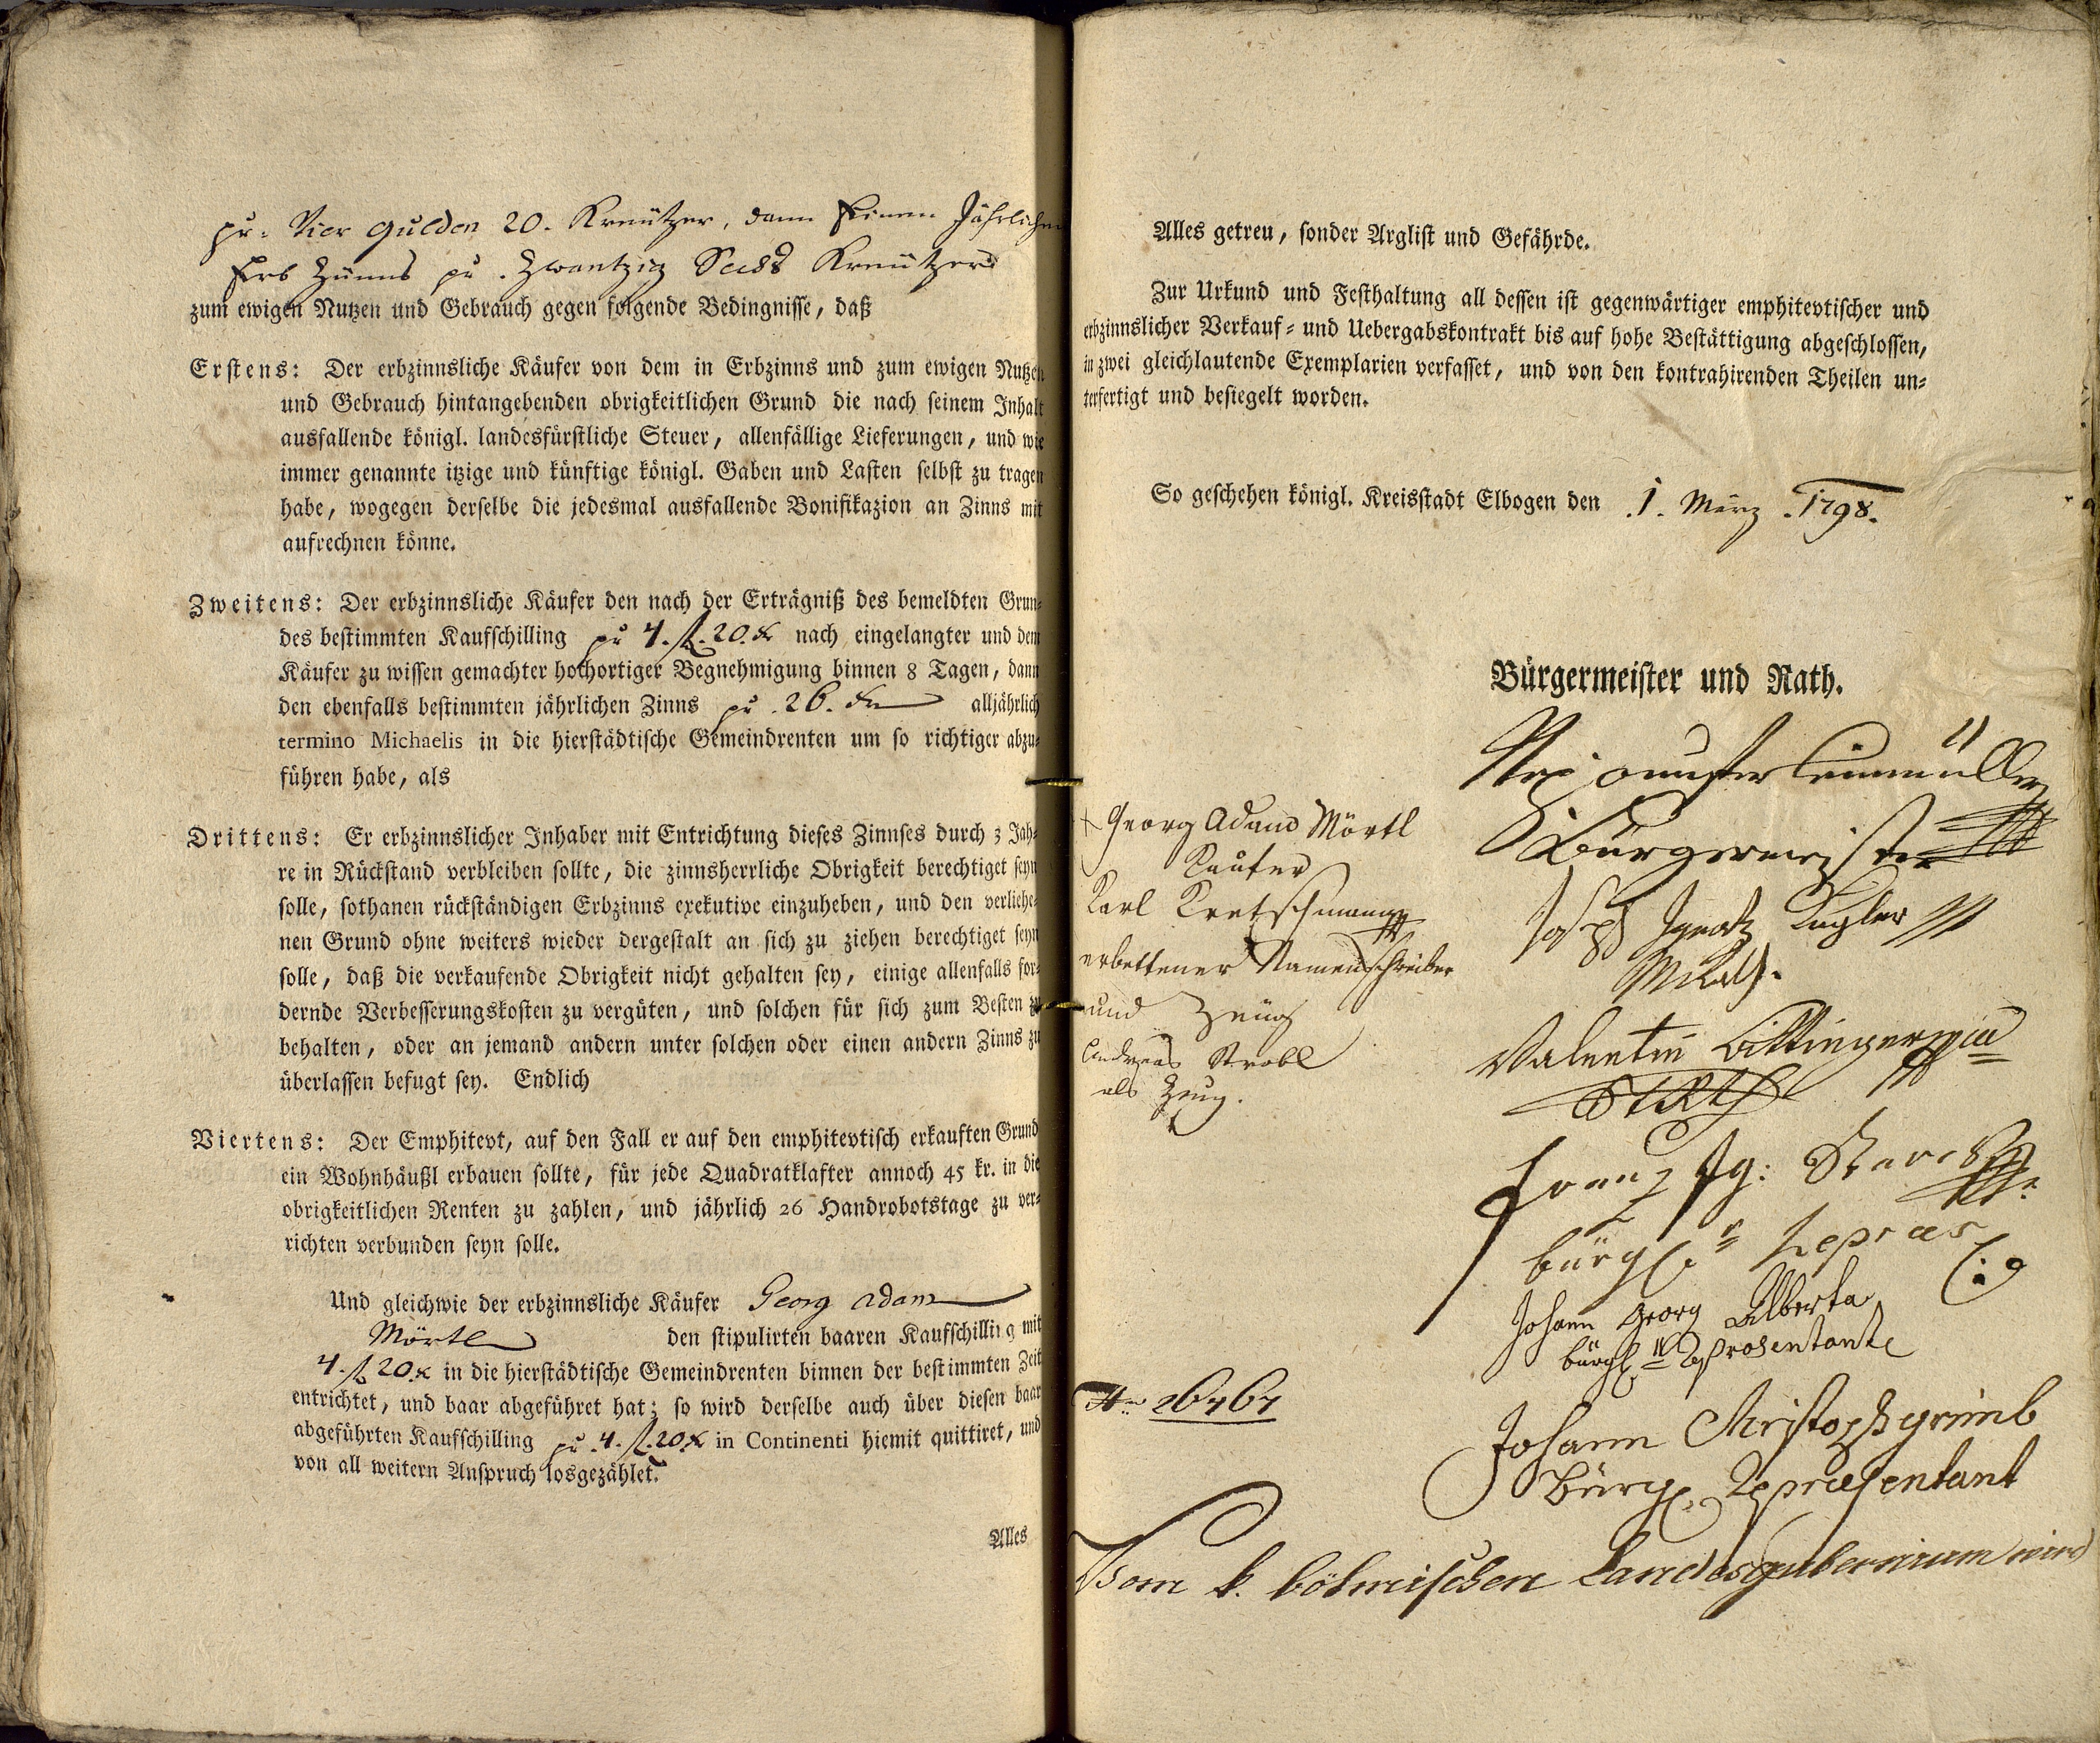 pr: Vier Gulden 20. Kreützer, dann Einen Jährlichen
Erb Zünns pr. Zwantzig Sechs Kreützer
zum ewigen Nutzen und Gebrauch gegen folgende Bedingnisse, daß
Erstens: Der erbzinnsliche Käufer von dem in Erbzinns und zum ewigen Nutzen
und Gebrauch hintangebenden obrigkeitlichen Grund die nach seinem Inhalt
ausfallende königl. landesfürstliche Steuer, allenfällige Lieferungen, und wie
immer genannte itzige und künftige königl. Gaben und Lasten selbst zu tragen
habe, wogegen derselbe die jedesmal ausfallende Bonifikazion an Zinns mit
aufrechnen könne.
Zweitens: Der erbzinnsliche Käufer den nach der Erträgniß des bemeldten Grun-
des bestimmten Kaufschilling pr 4. fl. 20. xr nach eingelangter und dem
Käufer zu wissen gemachter hochortiger Begnehmigung binnen 8 Tagen, dann
den ebenfalls bestimmten jährlichen Zinns pr. 26. xr alljährlich
termino Michaelis in die hierstädtische Gemeindrenten um so richtiger abzu-
führen habe, als
Drittens: Er erbzinnslicher Inhaber mit Entrichtung dieses Zinnses durch 3 Jah-
re in Rückstand verbleiben sollte, die zinnsherrliche Obrigkeit berechtiget seyn
solle, sothanen rückständigen Erbzinns exekutive einzuheben, und den verliehe-
nen Grund ohne weiters wieder dergestalt an sich zu ziehen berechtiget seyn
solle, daß die verkaufende Obrigkeit nicht gehalten sey, einige allenfalls for-
dernde Verbesserungskosten zu vergüten, und solchen für sich zum Besten zu
behalten, oder an jemand andern unter solchen oder einen andern Zinns zu
überlassen befugt sey. Endlich
Viertens: Der Emphitevt, auf den Fall er auf den emphitevtisch erkauften Grund
ein Wohnhäußl erbauen sollte, für jede Quadratklafter annoch 45 kr. in die
obrigkeitlichen Renten zu zahlen, und jährlich 26 Handrobotstage zu ver-
richten verbunden seyn solle.
Und gleichwie der erbzinnsliche Käufer Georg Adam
Mörtl den stipulirten baaren Kaufschilling mit
4. fl. 20. x in die hierstädtische Gemeindrenten binnen der bestimmten Zeit
entrichtet, und baar abgeführet hat; so wird derselbe auch über diesen baar
abgeführten Kaufschilling pr. 4. fl. 20. x in Continenti hiemit quittiret, und
von all weitern Anspruch losgezählet.
Alles
Alles getreu, sonder Arglist und Gefährde.
Zur Urkund und Festhaltung all dessen ist gegenwärtiger emphitevtischer und
erbzinnslicher Verkauf- und Uebergabskontrakt bis auf hohe Bestättigung abgeschlossen,
in zwei gleichlautende Exemplarien verfasset, und von den kontrahirenden Theilen un-
terfertigt und besiegelt worden.
So geschehen königl. Kreisstadt Elbogen den .1. März .1798.
Bürgermeister und Rath.
Bürgermeister
Georg Adam Mörtl
Kaufer
Karl Kretschmann
erbettener Namenschreiber
und Zeüg
Andreas Strobl
als Zeug.
Joseph Ignatz Kugler
MRath.
Valentin
StRth
Franz Ig:
bürgl. r Repräs
Johann Georg Alberta
bürgl. Representante
Johann Christoph grimb
Bürgl. Repræsentant
Vom k. böhmischen Landesgubernium wird